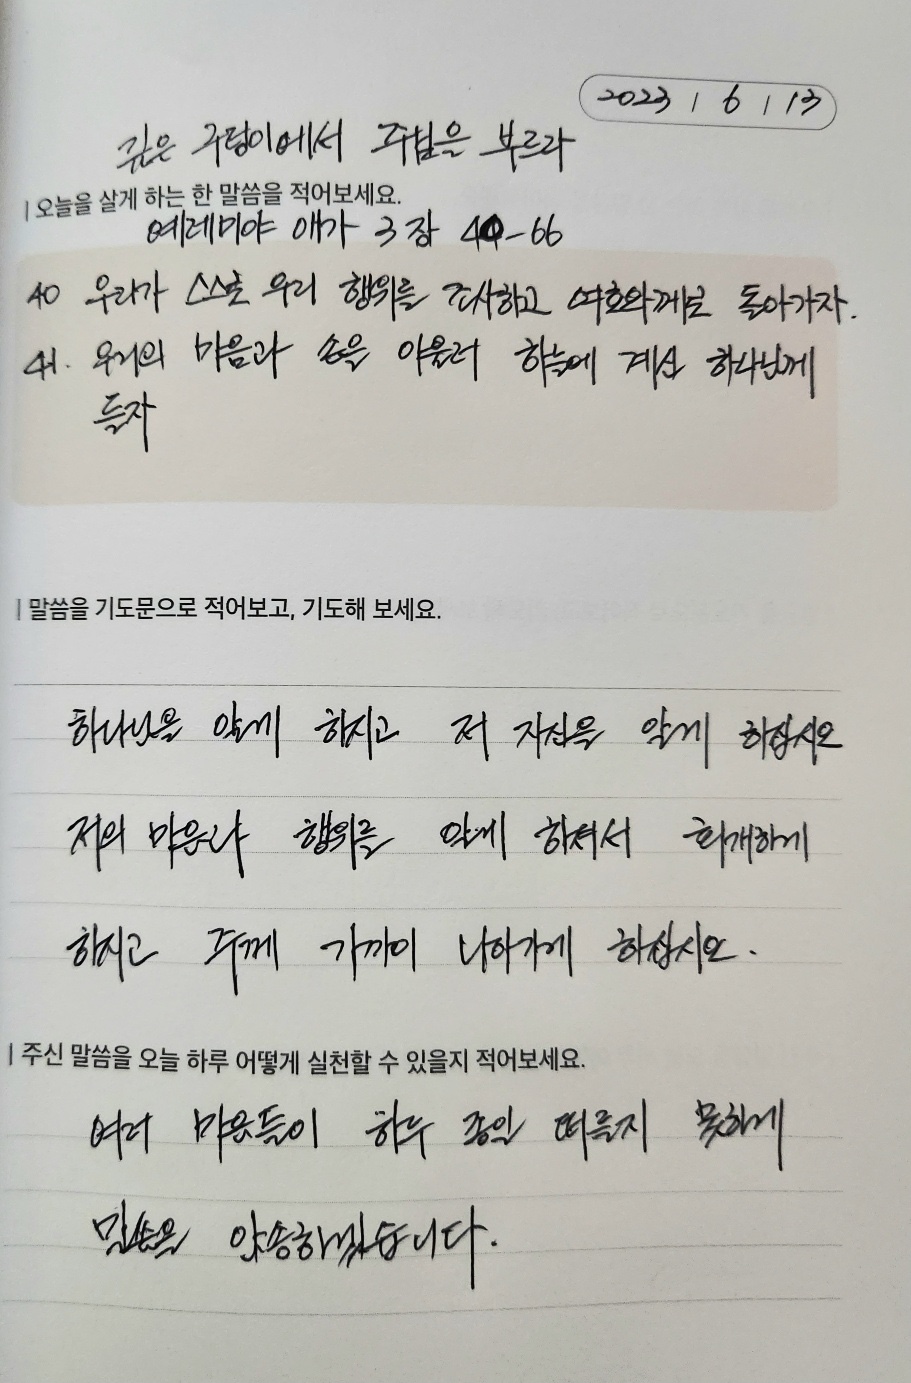 2023 / 6 / 13
깊은 구렁이에서 주님을 부르라
| 오늘을 살게 하는 한 말씀을 적어보세요.
예레미야 애가 3장 40-66
40 우리가 스스로 우리 행위를 조사하고 여호와께로 돌아가자.
41. 우리의 마음과 손을 아울러 하늘에 계신 하나님께
들자
| 말씀을 기도문으로 적어보고, 기도해 보세요.
하나님을 알게 하시고 저 자신을 알게 하십시오
저의 마음과 행위를 알게 하셔서 회개하게
하시고 주께 가까이 나아가게 하십시오.
| 주신 말씀을 오늘 하루 어떻게 실천할 수 있을지 적어보세요.
여러 마음들이 하루 종일 떠들지 못하게
말씀을 암송하겠습니다.